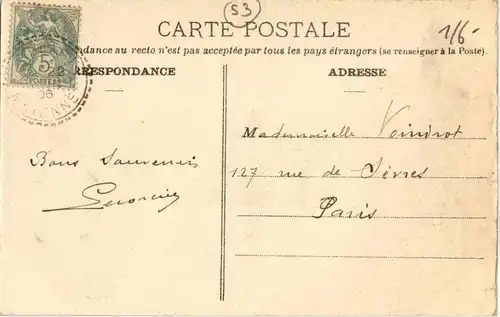 53
1/6-
CARTE POSTALE
ndance au recto n'est pas acceptée par tous les pays étrangers (se renseigner à la Poste).
RRESPONDANCE
ADRESSE
5
POSTES
06
Mademoiselle Voindrot
Bons Souvenirs
127 rue de Sèvres
Paris